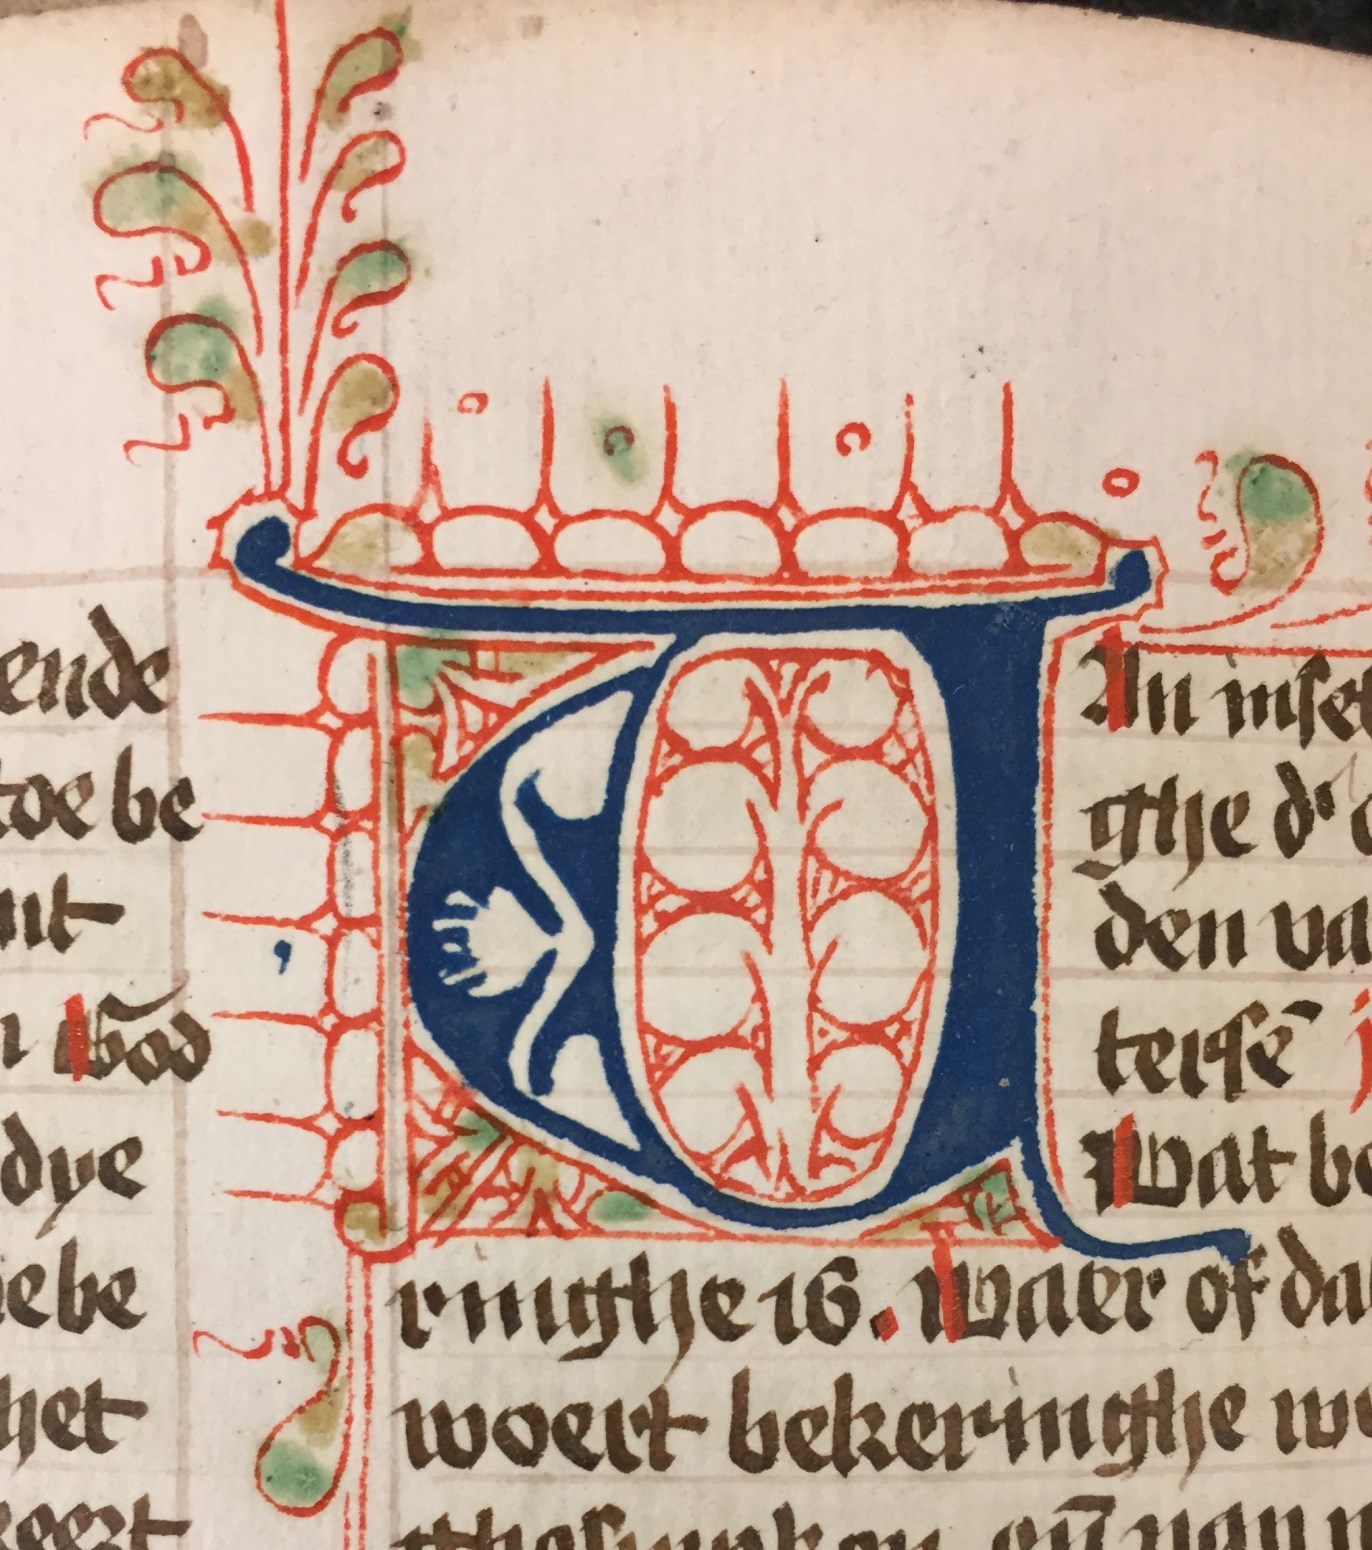 ende
toe be
nt
n God
dye
iebe
het
keert
A
An inset
ghe dʼ
den va
tersẽ
Wat be
ringhe 16. Waer of dat
woert bekeringhe we